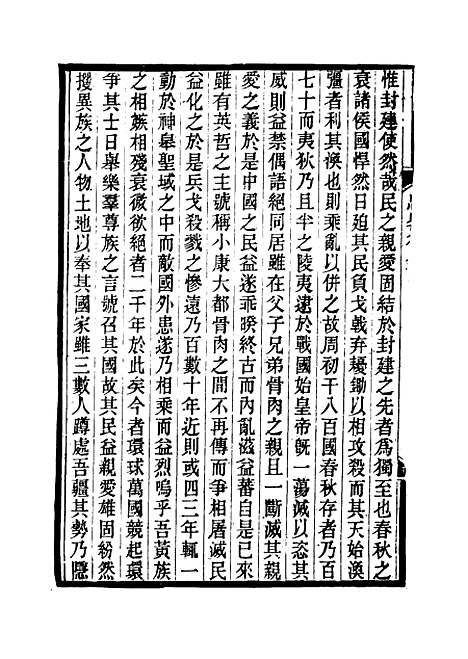 惟封建使然哉民之親愛固結於封建之先者爲獨至也春秋之
衰諸侯國悍然日迫其民負戈戟弃耰鋤以相攻殺而其天始渙
彊者利其渙也則乘亂以併之故周初千八百國春秋存者乃百
七十而夷狄乃且半之陵夷逮於戰國始皇帝旣一蕩滅以恣其
威則益禁偶語絕同居雖在父子兄弟骨肉之親且一斷滅其親
愛之義於是中國之民益遂乖暌終古而內亂滋益蕃自是已來
雖有英哲之主號稱小康大都骨肉之間不再傳而爭相屠滅民
益化之於是兵戈殺戮之慘遠乃百數十年近則或四三年輒一
動於神皋聖域之中而敵國外患遂乃相乘而益烈嗚乎吾黃族
之相嫉相殘衰微欲絕者二千年於此矣今者環球萬國競起環
爭其士日舉樂羣尊族之言號召其國故其民益親愛雄固紛然
攫異族之人物土地以奉其國家雖三數人蹲處吾疆其勢乃隱